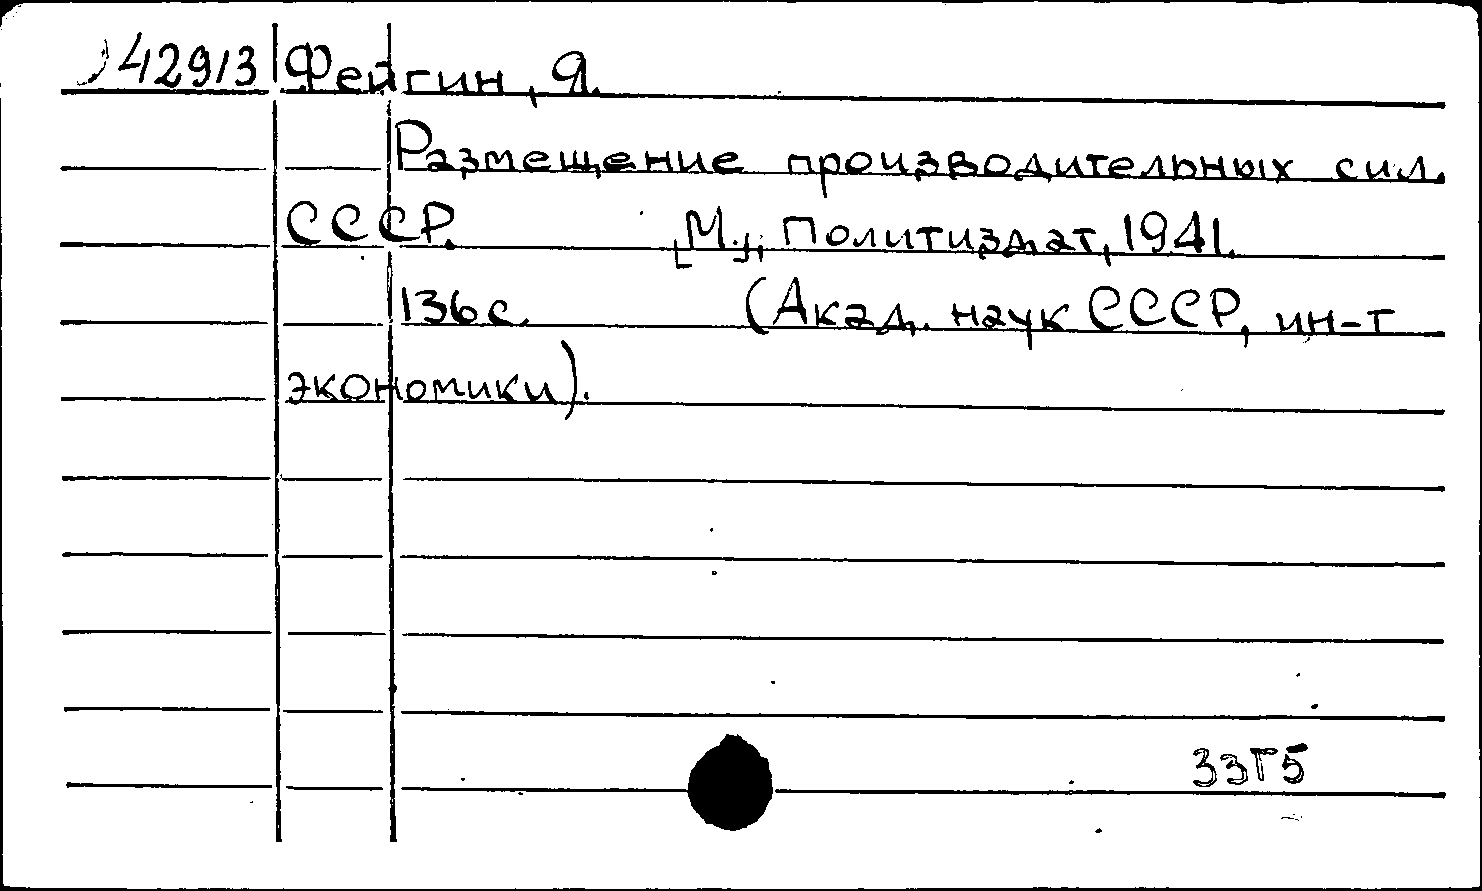 42913 Фейгин, Я.
Размещение производительных сил
СССР. [М.], Политиздат, 1941.
136 с. (Акад. наук СССР, ин-т
экономики).
33Г5